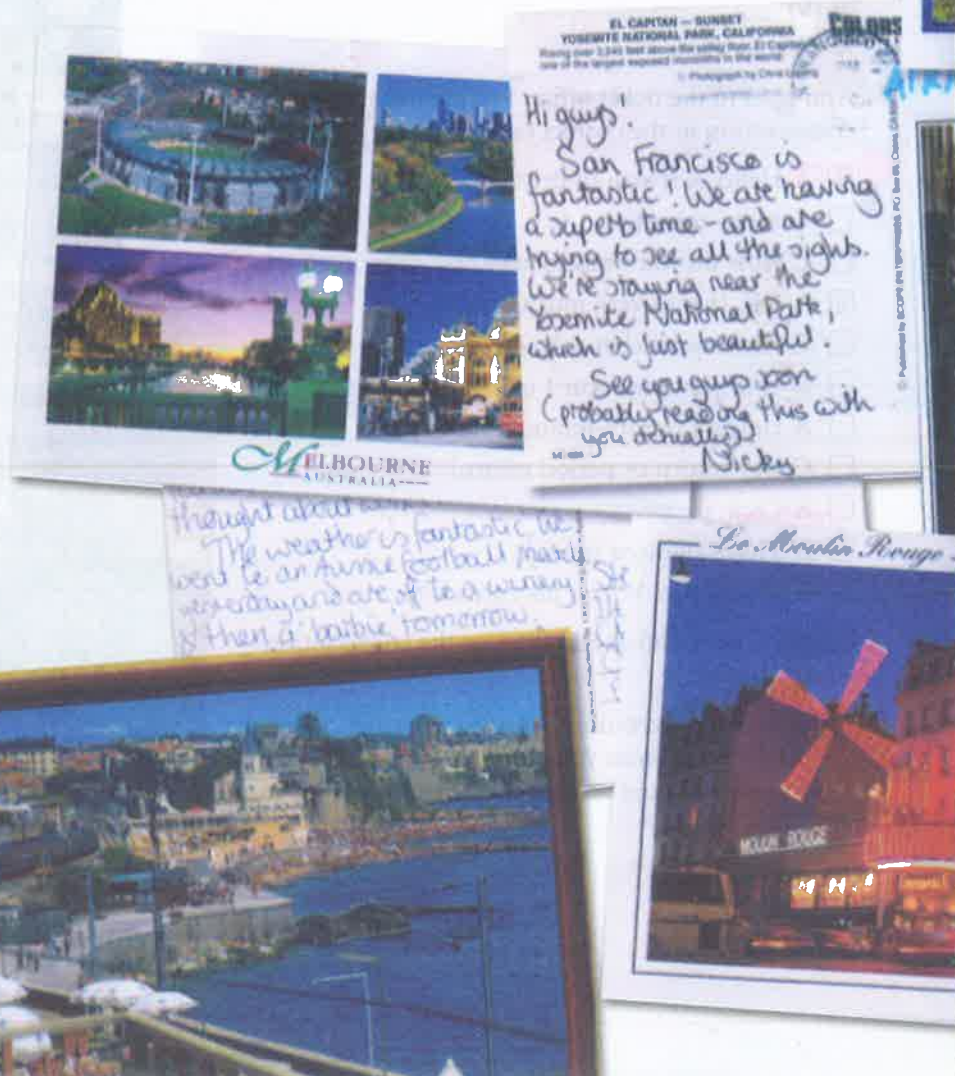 EL CAPITAN — SUNSET
YOSEMITE NATIONAL PARK, CALIFORNIA
Rising over 3,245 feet above the valley floor. El Capitan
one of the largest exposed monoliths in the world
© Photograph by Chris
COLORS
Hi guys!
San Francisco is
fantastic! We are having
a superb time - and are
trying to see all the sights.
We're staying near the
Yosemite National Park,
which is just beautiful.
See you guys soon
(probably reading this with
you actually)
Nicky
MELBOURNE
AUSTRALIA
thought about
The weather is fantastic. We
went to an Aussie football match
yesterday and are off to a winery
& then a 'barbie' tomorrow.
Le Moulin Rouge
MOULIN ROUGE